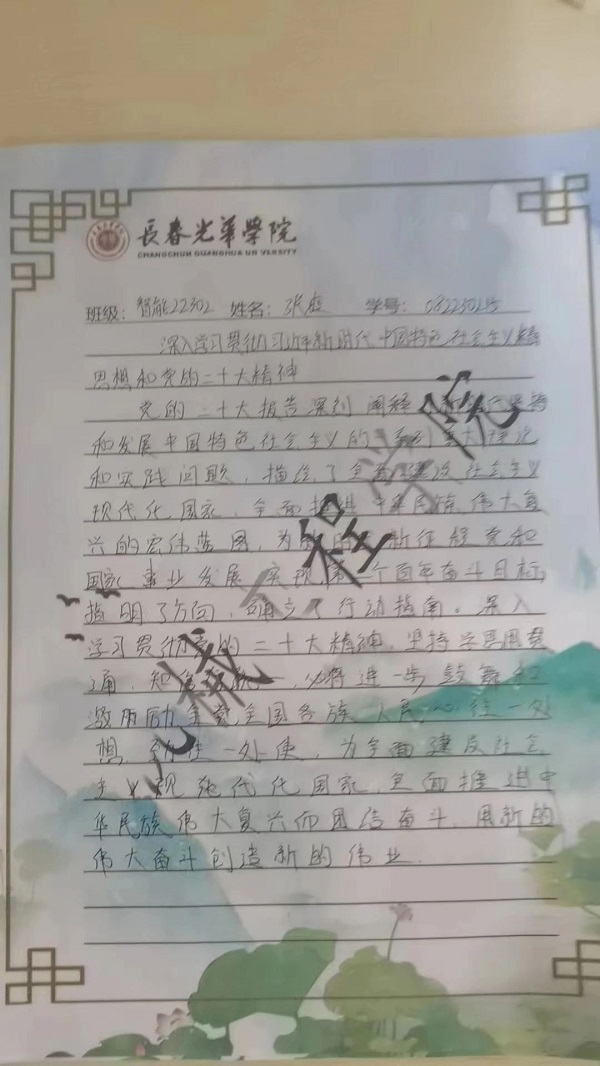 長春光華學院
CHANGCHUN GUANGHUA UNIVERSITY
班级：智能22302 姓名：张 学号：08223021
深入学习贯彻习近平新时代中国特色社会主义
思想和党的二十大精神
党的二十大报告深刻阐释 坚持
和发展中国特色社会主义的 重大理论
和实践问题，描绘了全面建设社会主义
现代化国家、全面推进中华民族伟大复
兴的宏伟蓝图，为 新征程党和
国家事业发展、实现第二个百年奋斗目标
指明了方向，确立了行动指南。深入
学习贯彻党的二十大精神，坚持学思用贯
通、知信行统一，必将进一步鼓舞和
激励全党全国各族人民心往一处
想、劲往一处使，为全面建设社会
主义现代化国家、全面推进中
华民族伟大复兴而团结奋斗，用新的
伟大奋斗创造新的伟业.
机械工程学院